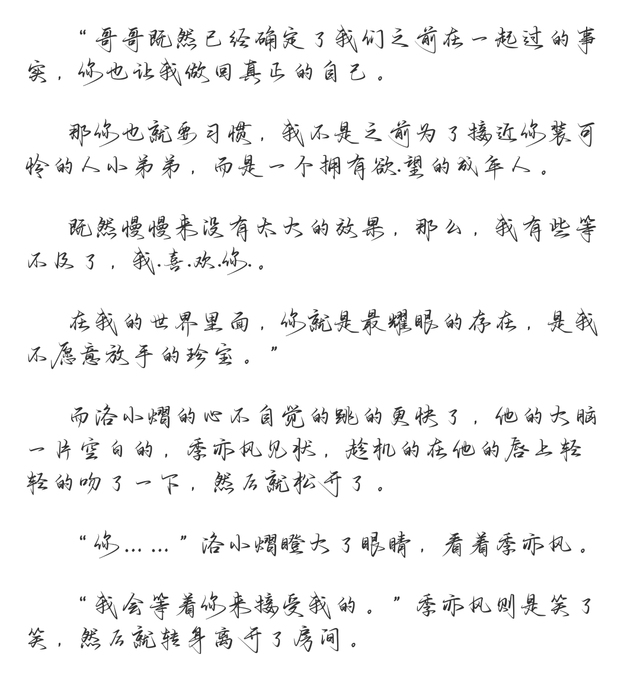 “哥哥既然已经确定了我们之前在一起过的事
实，你也让我做回真正的自己。
那你也就要习惯，我不是之前为了接近你装可
怜的人小弟弟，而是一个拥有欲.望的成年人。
既然慢慢来没有太大的效果，那么，我有些等
不及了，我.喜.欢.你.。
在我的世界里面，你就是最耀眼的存在，是我
不愿意放手的珍宝。”
而洛小熠的心不自觉的跳的更快了，他的大脑
一片空白的，季亦风见状，趁机的在他的唇上轻
轻的吻了一下，然后就松开了。
“你……”洛小熠瞪大了眼睛，看着季亦风。
“我会等着你来接受我的。”季亦风则是笑了
笑，然后就转身离开了房间。